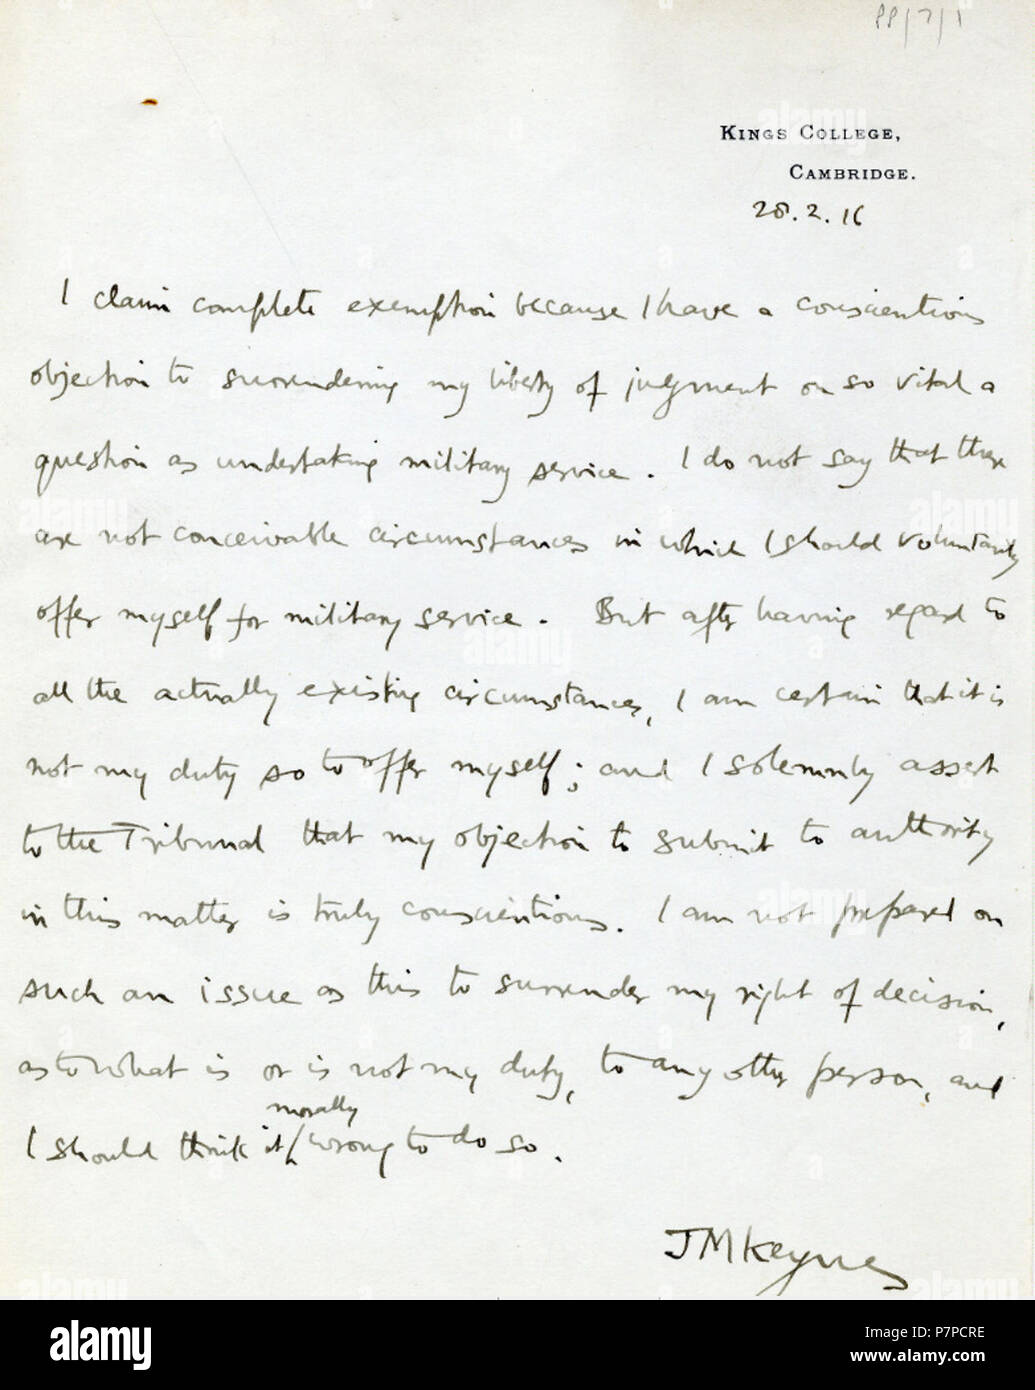 PP/7/1
KINGS COLLEGE,
CAMBRIDGE.
28.2.16
I claim complete exemption because I have a conscientious
objection to surrendering my liberty of judgment on so vital a
question as undertaking military service. I do not say that there
are not conceivable circumstances in which I should voluntarily
offer myself for military service. But after having regard to
all the actually existing circumstances, I am certain that it is
not my duty so to offer myself; and I solemnly assert
to the Tribunal that my objection to submit to authority
in this matter is truly conscientious. I am not prepared on
such an issue as this to surrender my right of decision,
as to what is or is not my duty, to any other person, and
morally
I should think it wrong to do so.
JMKeynes
alamy
Image ID: P7PCRE
www.alamy.com